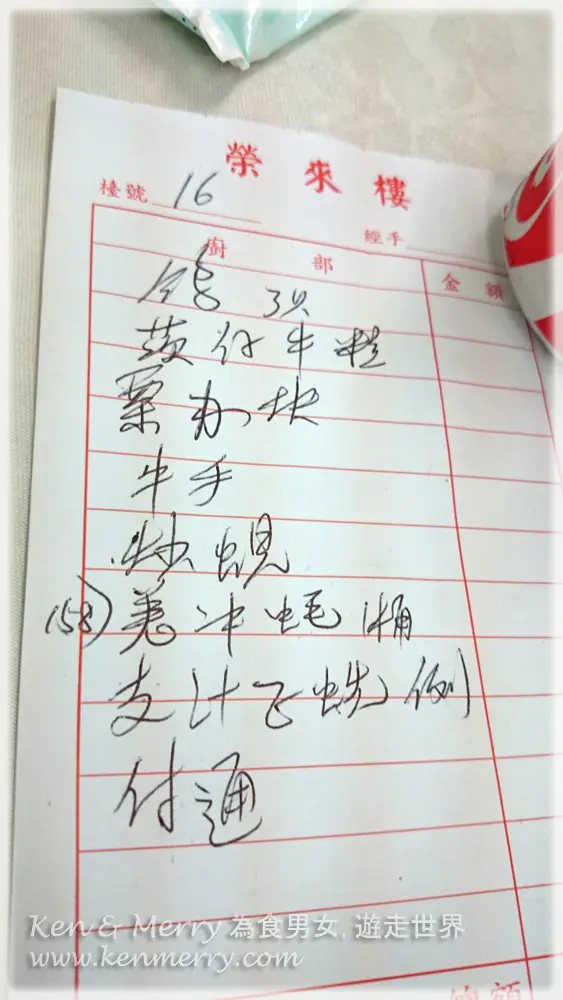 榮來樓
檯號 16
經手
廚部 金額
茨仔牛粒
粟加块
牛手
炒蜆
158) 羌冲蚝 桶
支汁飞蟯 例
付通
Ken & Merry 為食男女, 遊走世界
www.kenmerry.com